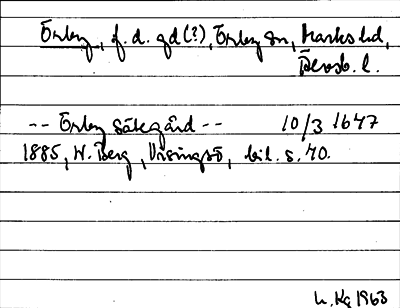 Örby, f. d. gd (?), Örby sn, Marks hd,
Älvsb. l.
-- Örby Sätegård -- 10/3 1647
1885, W. Berg, Visingsö, bil. s. 70.
L. Kg 1963